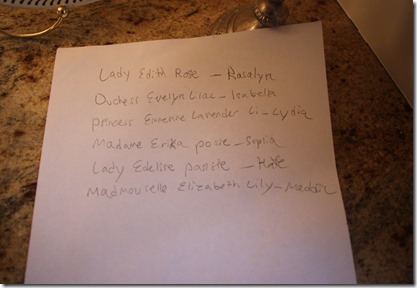 Lady Edith Rose – Rosalyn
Duchess Evelyn Lilac – Isabella
Princess Lavender Li – Lydia
Madame Erika posie – Sophia
Lady Edelise pansie –
Madmouselle Elizabeth Lily –